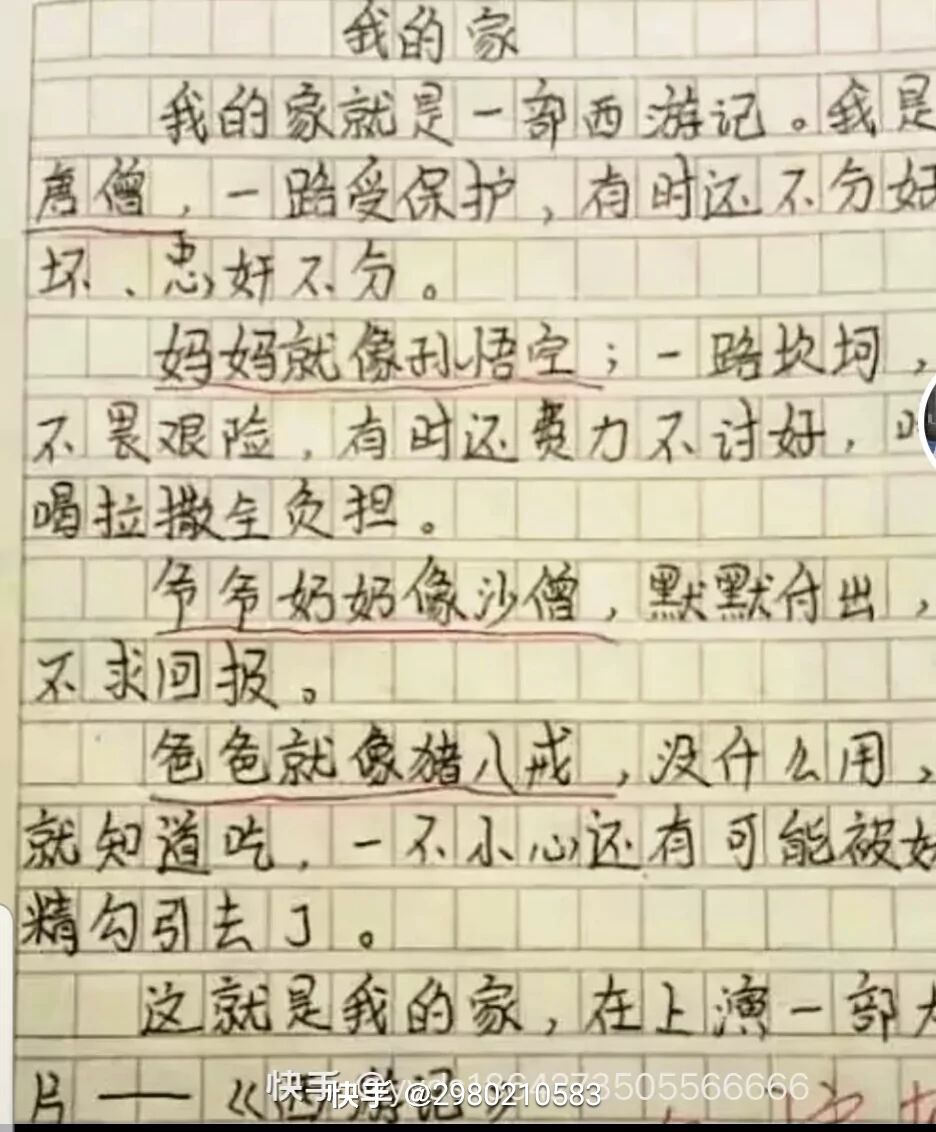 我的家
我的家就是一部西游记。我是
唐僧，一路受保护，有时还不分好
坏、忠奸不分。
妈妈就像孙悟空；一路坎坷，
不畏艰险，有时还费力不讨好，
喝拉撒全负担。
爷爷奶奶像沙僧，默默付出，
不求回报。
爸爸就像猪八戒，没什么用，
就知道吃，一不小心还有可能被
精勾引去了。
这就是我的家，在上演一部大
片——《西游记》
快手 @2980210583